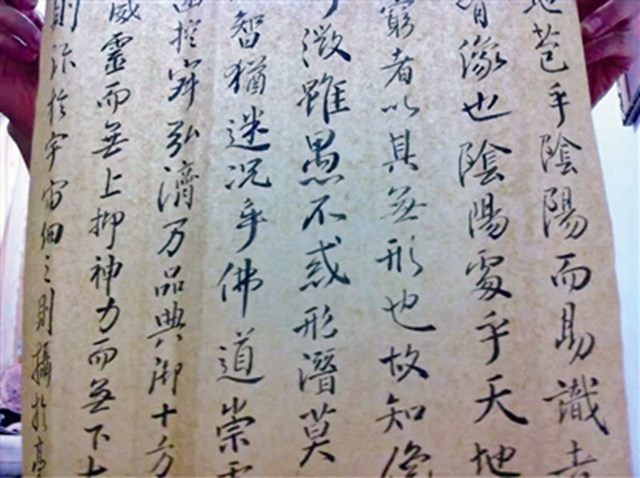 地苞乎陰陽而易識者
有像也陰陽處乎天地
窮者以其無形也故知像
徵雖愚不惑形潛莫
智猶迷況乎佛道崇
控寂弘濟万品典御十方
威靈而無上抑神力而無下大
則弥於宇宙細之則攝於毫